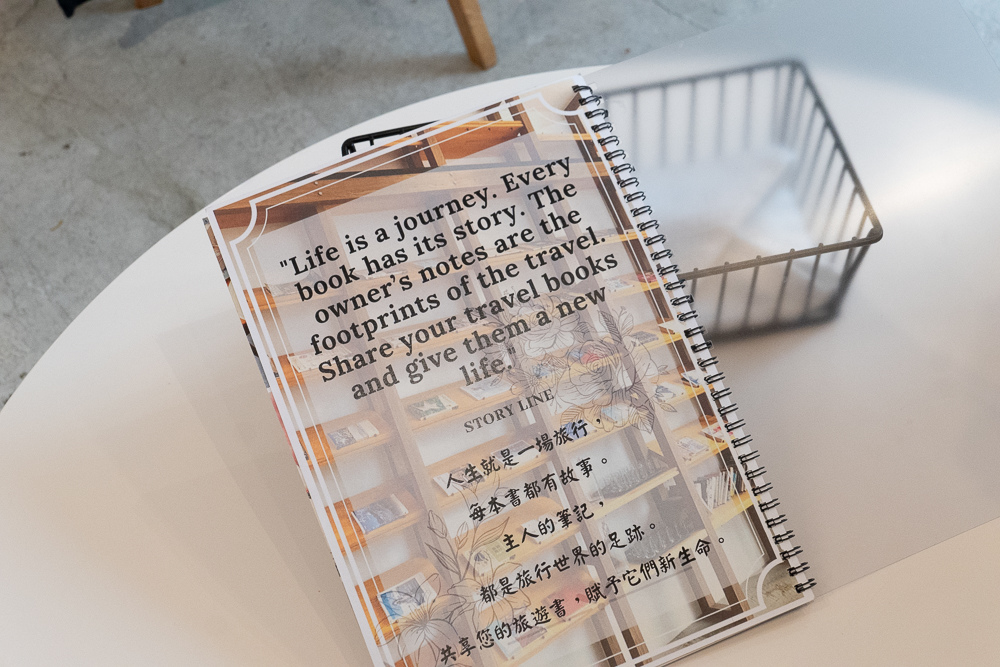 "Life is a journey. Every
book has its story. The
owner's notes are the
footprints of the travel.
Share your travel books
and give them a new
life."
STORY LINE
人生就是一場旅行，
每本書都有故事。
主人的筆記，
都是旅行世界的足跡。
共享您的旅遊書，賦予它們新生命。